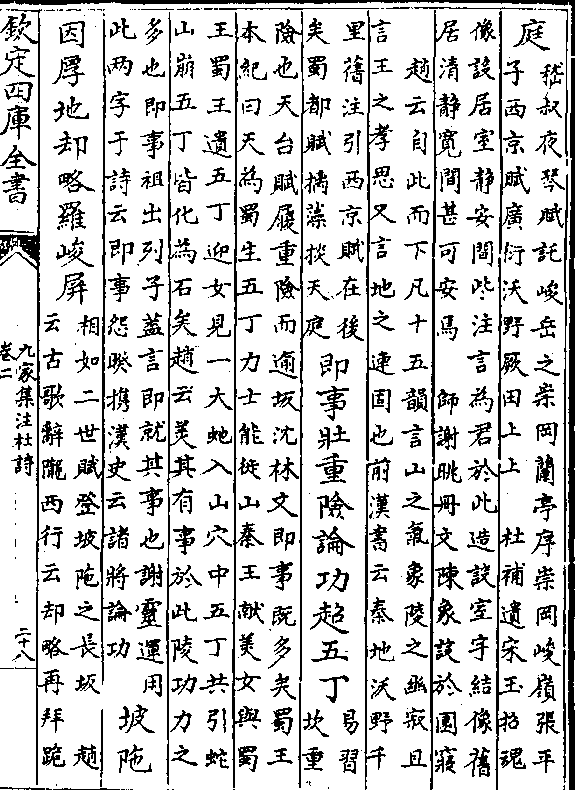 庭
嵇叔夜琴賦託峻岳之崇岡蘭亭序崇岡峻嶺張平
子西京賦廣衍沃野厥田上上　杜補遺宋玉招魂
像設居室静安間些注言為君於此造設室宇結像舊
居清静寛間甚可安焉　師謝脁冊文陳象設於園寢
趙云自此而下凡十五韻言山之氣象陵之幽寂且
言王之孝思又言地之連固也前漢書云秦地沃野千
里舊注引西京賦在後
矣蜀都賦摛藻掞天庭
即事壯重險論功超五丁
易習
坎重
險也天台賦履重險而逾坂沈林文即事既多矣蜀王
本紀曰天為蜀生五丁力士能徙山秦王献美女與蜀
王蜀王遺五丁迎女見一大虵入山穴中五丁共引蛇
山崩五丁皆化為石矣趙云美其有事於此陵功力之
多也即事祖出列子蓋言即就其事也謝靈運用
此两字于詩云即事怨睽携漢史云諸將論功
坡陁
因厚地却略羅峻屏
相如二世賦登坡陁之長坂　趙
云古歌辭隴西行云却略再拜跪
欽定四庫全書
九家集注杜詩
卷二
二十八